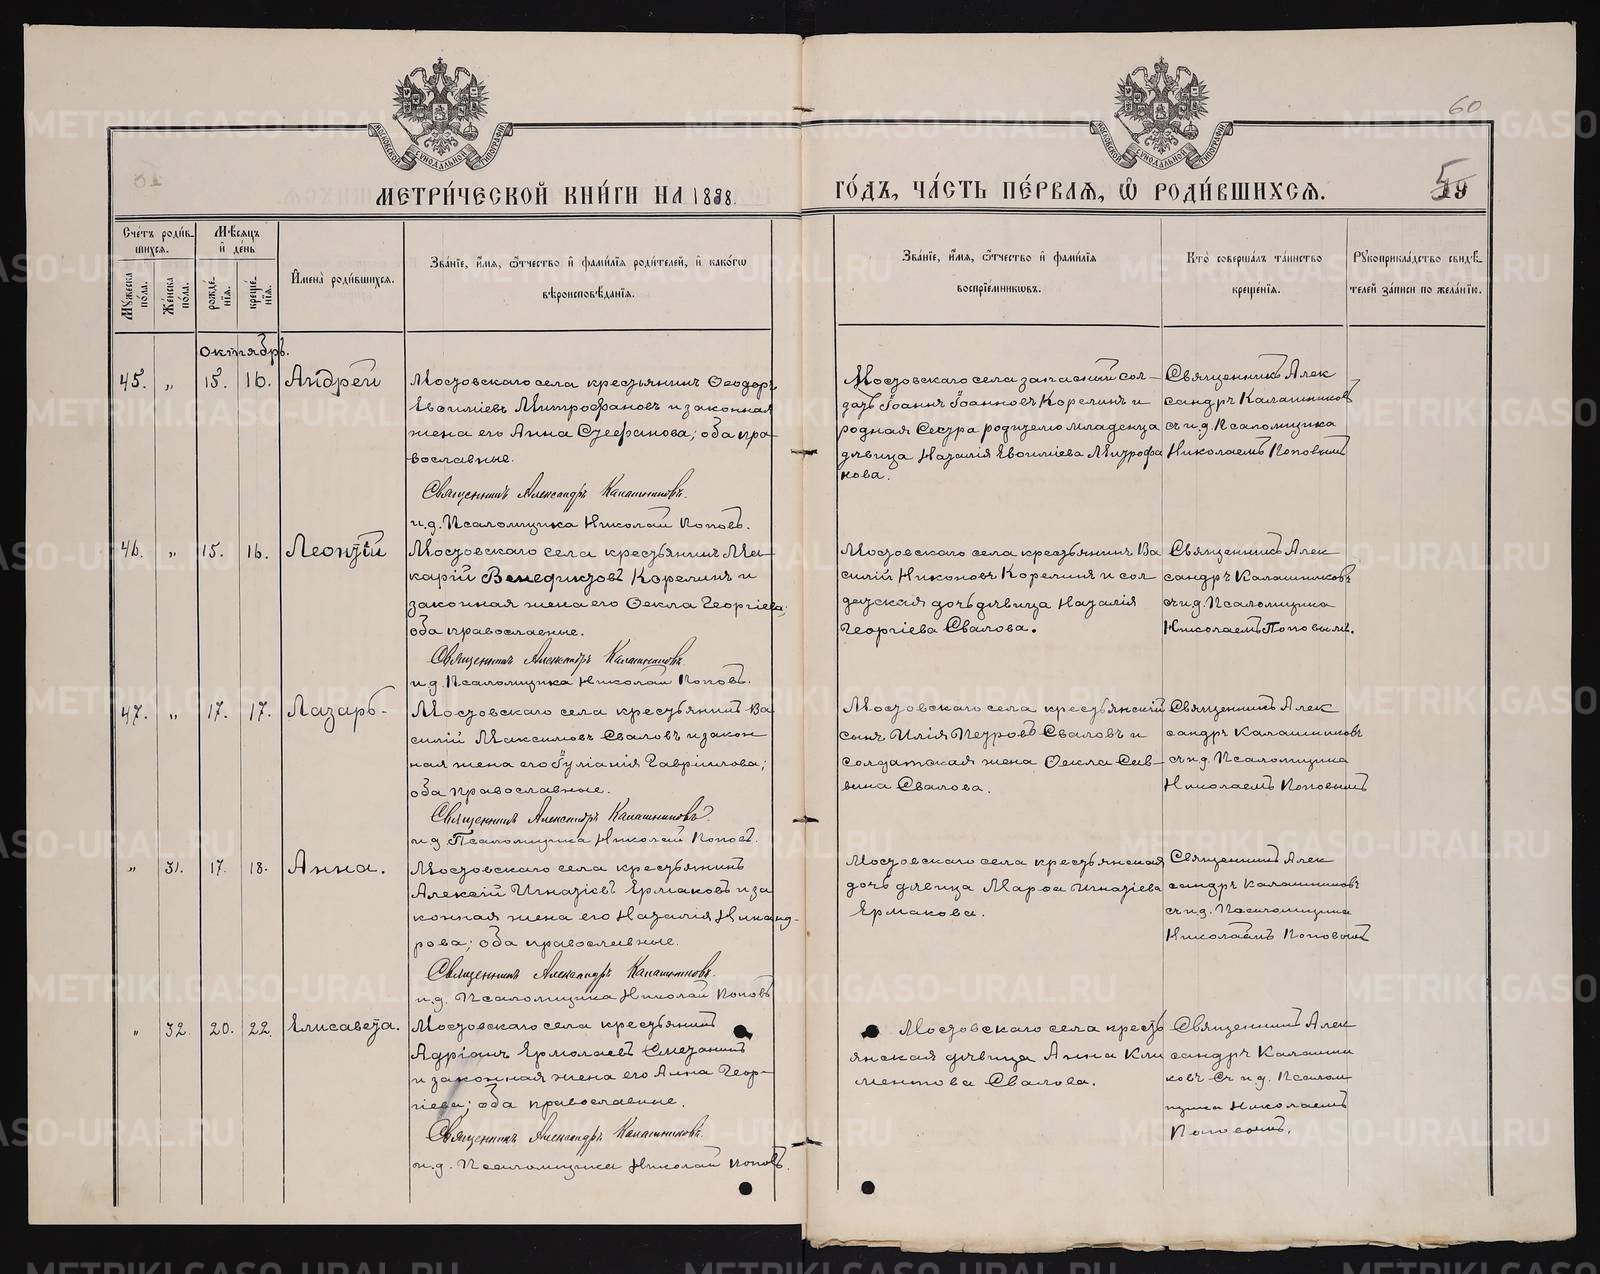 METRIKI.GASO-URAL.RU
60
МОСКОВСКОЙ СѴНОДАЛЬНОЙ ТИПОГРАФІИ
МОСКОВСКОЙ СѴНОДАЛЬНОЙ ТИПОГРАФІИ
МЕТРИ́ЧЕСКОЙ КНИ́ГИ НА 1898.
ГО́ДЪ, ЧА́СТЬ ПЕ́РВАЯ, Ѽ РОДИ́ВШИХСЯ.
59
Сче́тъ роди́в-
шихся.
Мѣ́сяцъ
и҆ де́нь
Мꙋ́жеска по́ла.
Же́нска по́ла.
рожде́-
нїѧ.
креще́-
нїѧ.
И҆мена̀ роди́вшихся.
Зва́нїе, и҆́мѧ, ѻ҆́тчество и҆ фами́лїѧ роди́телей, и҆ како́гѡ
вѣроисповѣ́данїѧ.
Зва́нїе, и҆́мѧ, ѻ҆́тчество и҆ фами́лїѧ
воспрїе́мникѡвъ.
Кто̀ соверша́лъ та́инство
креще́нїѧ.
Рꙋкоприкла́дство свидѣ́-
телей за́писи по жела́нїю.
Октябрь.
45. „ 15. 16. Андрей
Мостовскаго села крестьянинъ Ѳеодоръ
Евѳиміевъ Митрофановъ и законная
жена его Анна Стефанова; оба пра-
вославные.
Священникъ Александръ Калашниковъ.
и.д. Псаломщика Николай Поповъ.
Мостовскаго села запасный сол-
датъ Іоаннъ Іоанновъ Корелинъ и
родная сестра родителю младенца
дѣвица Наталія Евѳиміева Митрофа
нова.
Священникъ Алек
сандръ Калашниковъ
съ и.д. Псаломщика
Николаемъ Поповымъ
46. „ 15. 16. Леонтій
Мостовскаго села крестьянинъ Ма-
карій Венедиктовъ Корелинъ и
законная жена его Ѳекла Георгіева;
оба православные.
Священникъ Александръ Калашниковъ
и.д. Псаломщика Николай Поповъ.
Мостовскаго села крестьянинъ Ва
силій Никоновъ Корелинъ и сол
датская дочь дѣвица Наталія
Георгіева Свалова.
Священникъ Алек
сандръ Калашниковъ
съ и.д. Псаломщика
Николаемъ Поповымъ.
47. „ 17. 17. Лазарь.
Мостовскаго села крестьянинъ Ва
силій Максимовъ Сваловъ и закон
ная жена его Іуліанія Гавріилова;
оба православные.
Священникъ Александръ Калашниковъ
и.д. Псаломщика Николай Поповъ.
Мостовскаго села крестьянскій
сынъ Илія Петровъ Сваловъ и
солдатская жена Ѳекла Сав-
вина Свалова.
Священникъ Алек
сандръ Калашниковъ
съ и.д. Псаломщика
Николаемъ Поповымъ
„ 31. 17. 18. Анна.
Мостовскаго села крестьянинъ
Алексій Игнатіевъ Ермаковъ и за
конная жена его Наталія Никанд-
рова; оба православные.
Священникъ Александръ Калашниковъ.
и.д. Псаломщика Николай Поповъ
Мостовскаго села крестьянская
дочь дѣвица Марѳа Игнатіева
Ермакова.
Священникъ Алек
сандръ Калашниковъ
съ и.д. Псаломщика
Николаемъ Поповымъ
„ 32. 20. 22. Елисавета.
Мостовскаго села крестьянинъ
Адріанъ Ермолаевъ Сметанинъ
и законная жена его Анна Геор-
гіева; оба православные.
Священникъ Александръ Калашниковъ.
и.д. Псаломщика Николай Поповъ.
Мостовскаго села кресть
янская дѣвица Анна Кли
ментова Свалова.
Священникъ Алек
сандръ Калашни
ковъ съ и.д. Псалом
щика Николаемъ
Поповымъ.